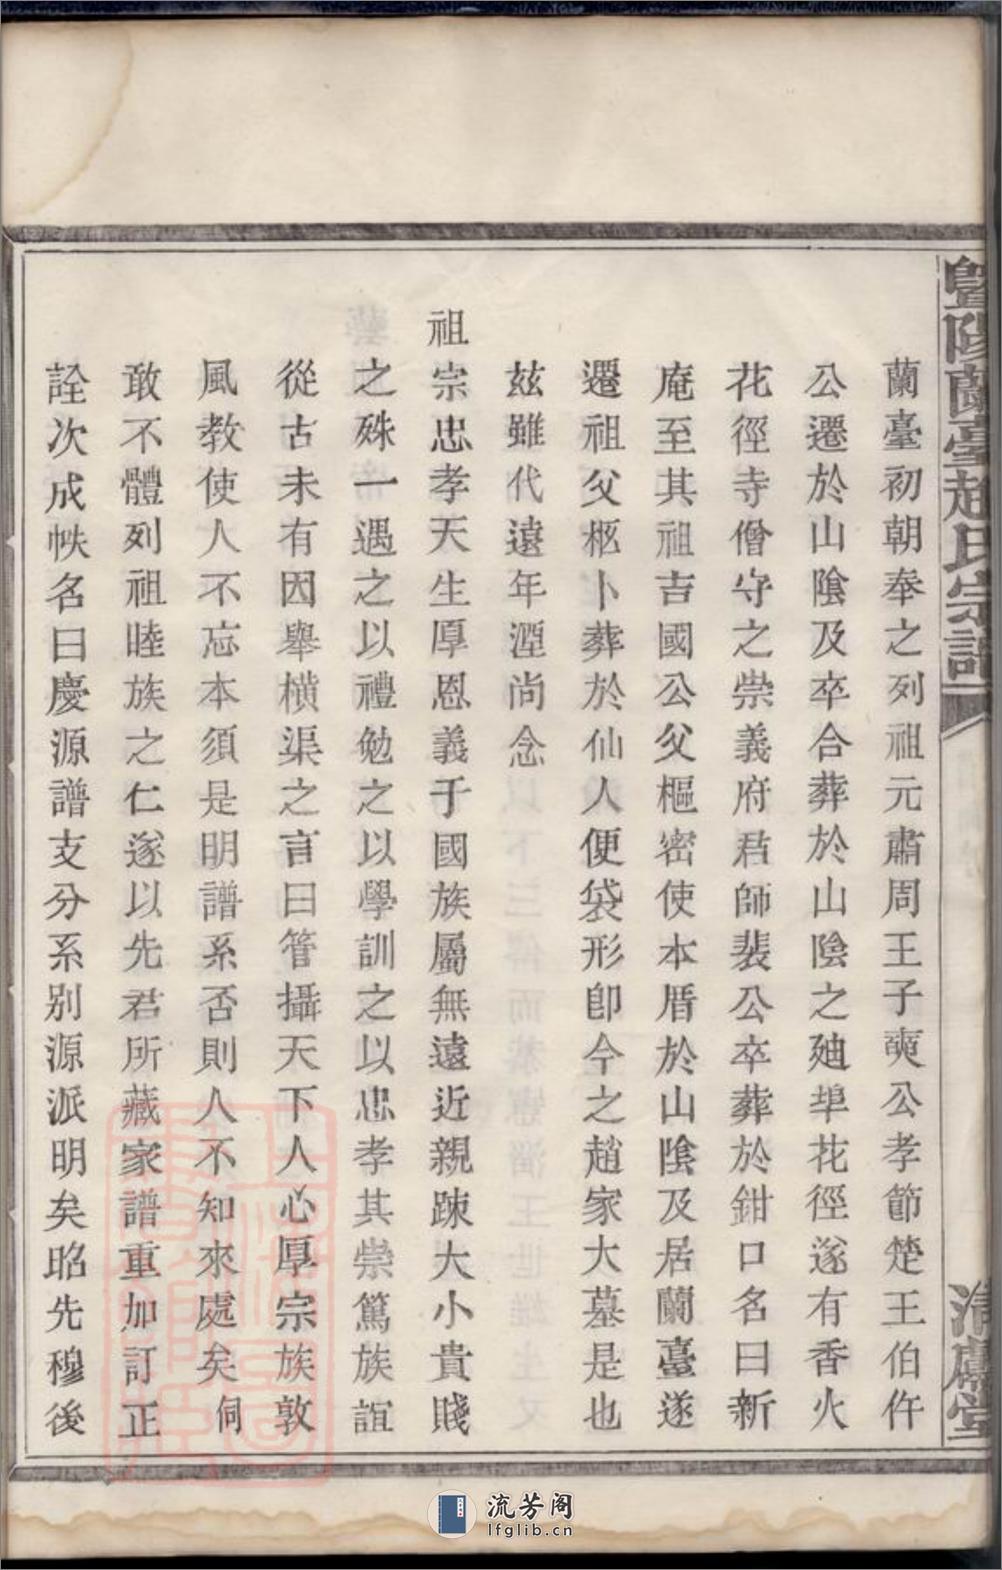 暨陽蘭臺趙氏宗譜
清獻堂
蘭臺初朝奉之列祖元肅周王子奭公孝節楚王伯仵
公遷於山陰及卒合葬於山陰之廸埠花徑遂有香火
花徑寺僧守之崇義府君師裴公卒葬於鉗口名曰新
庵至其祖吉國公父樞密使本厝於山陰及居蘭臺遂
遷祖父柩卜葬於仙人便袋形卽今之趙家大墓是也
茲雖代遠年湮尚念
祖宗忠孝天生厚恩義于國族屬無遠近親疎大小貴賤
之殊一遇之以禮勉之以學訓之以忠孝其崇篤族誼
從古未有因舉橫渠之言曰管攝天下人心厚宗族敦
風教使人不忘本須是明譜系否則人不知來處矣伺
敢不體列祖睦族之仁遂以先君所藏家譜重加訂正
詮次成帙名曰慶源譜支分系別源派明矣昭先穆後
流芳阁
lfglib.cn